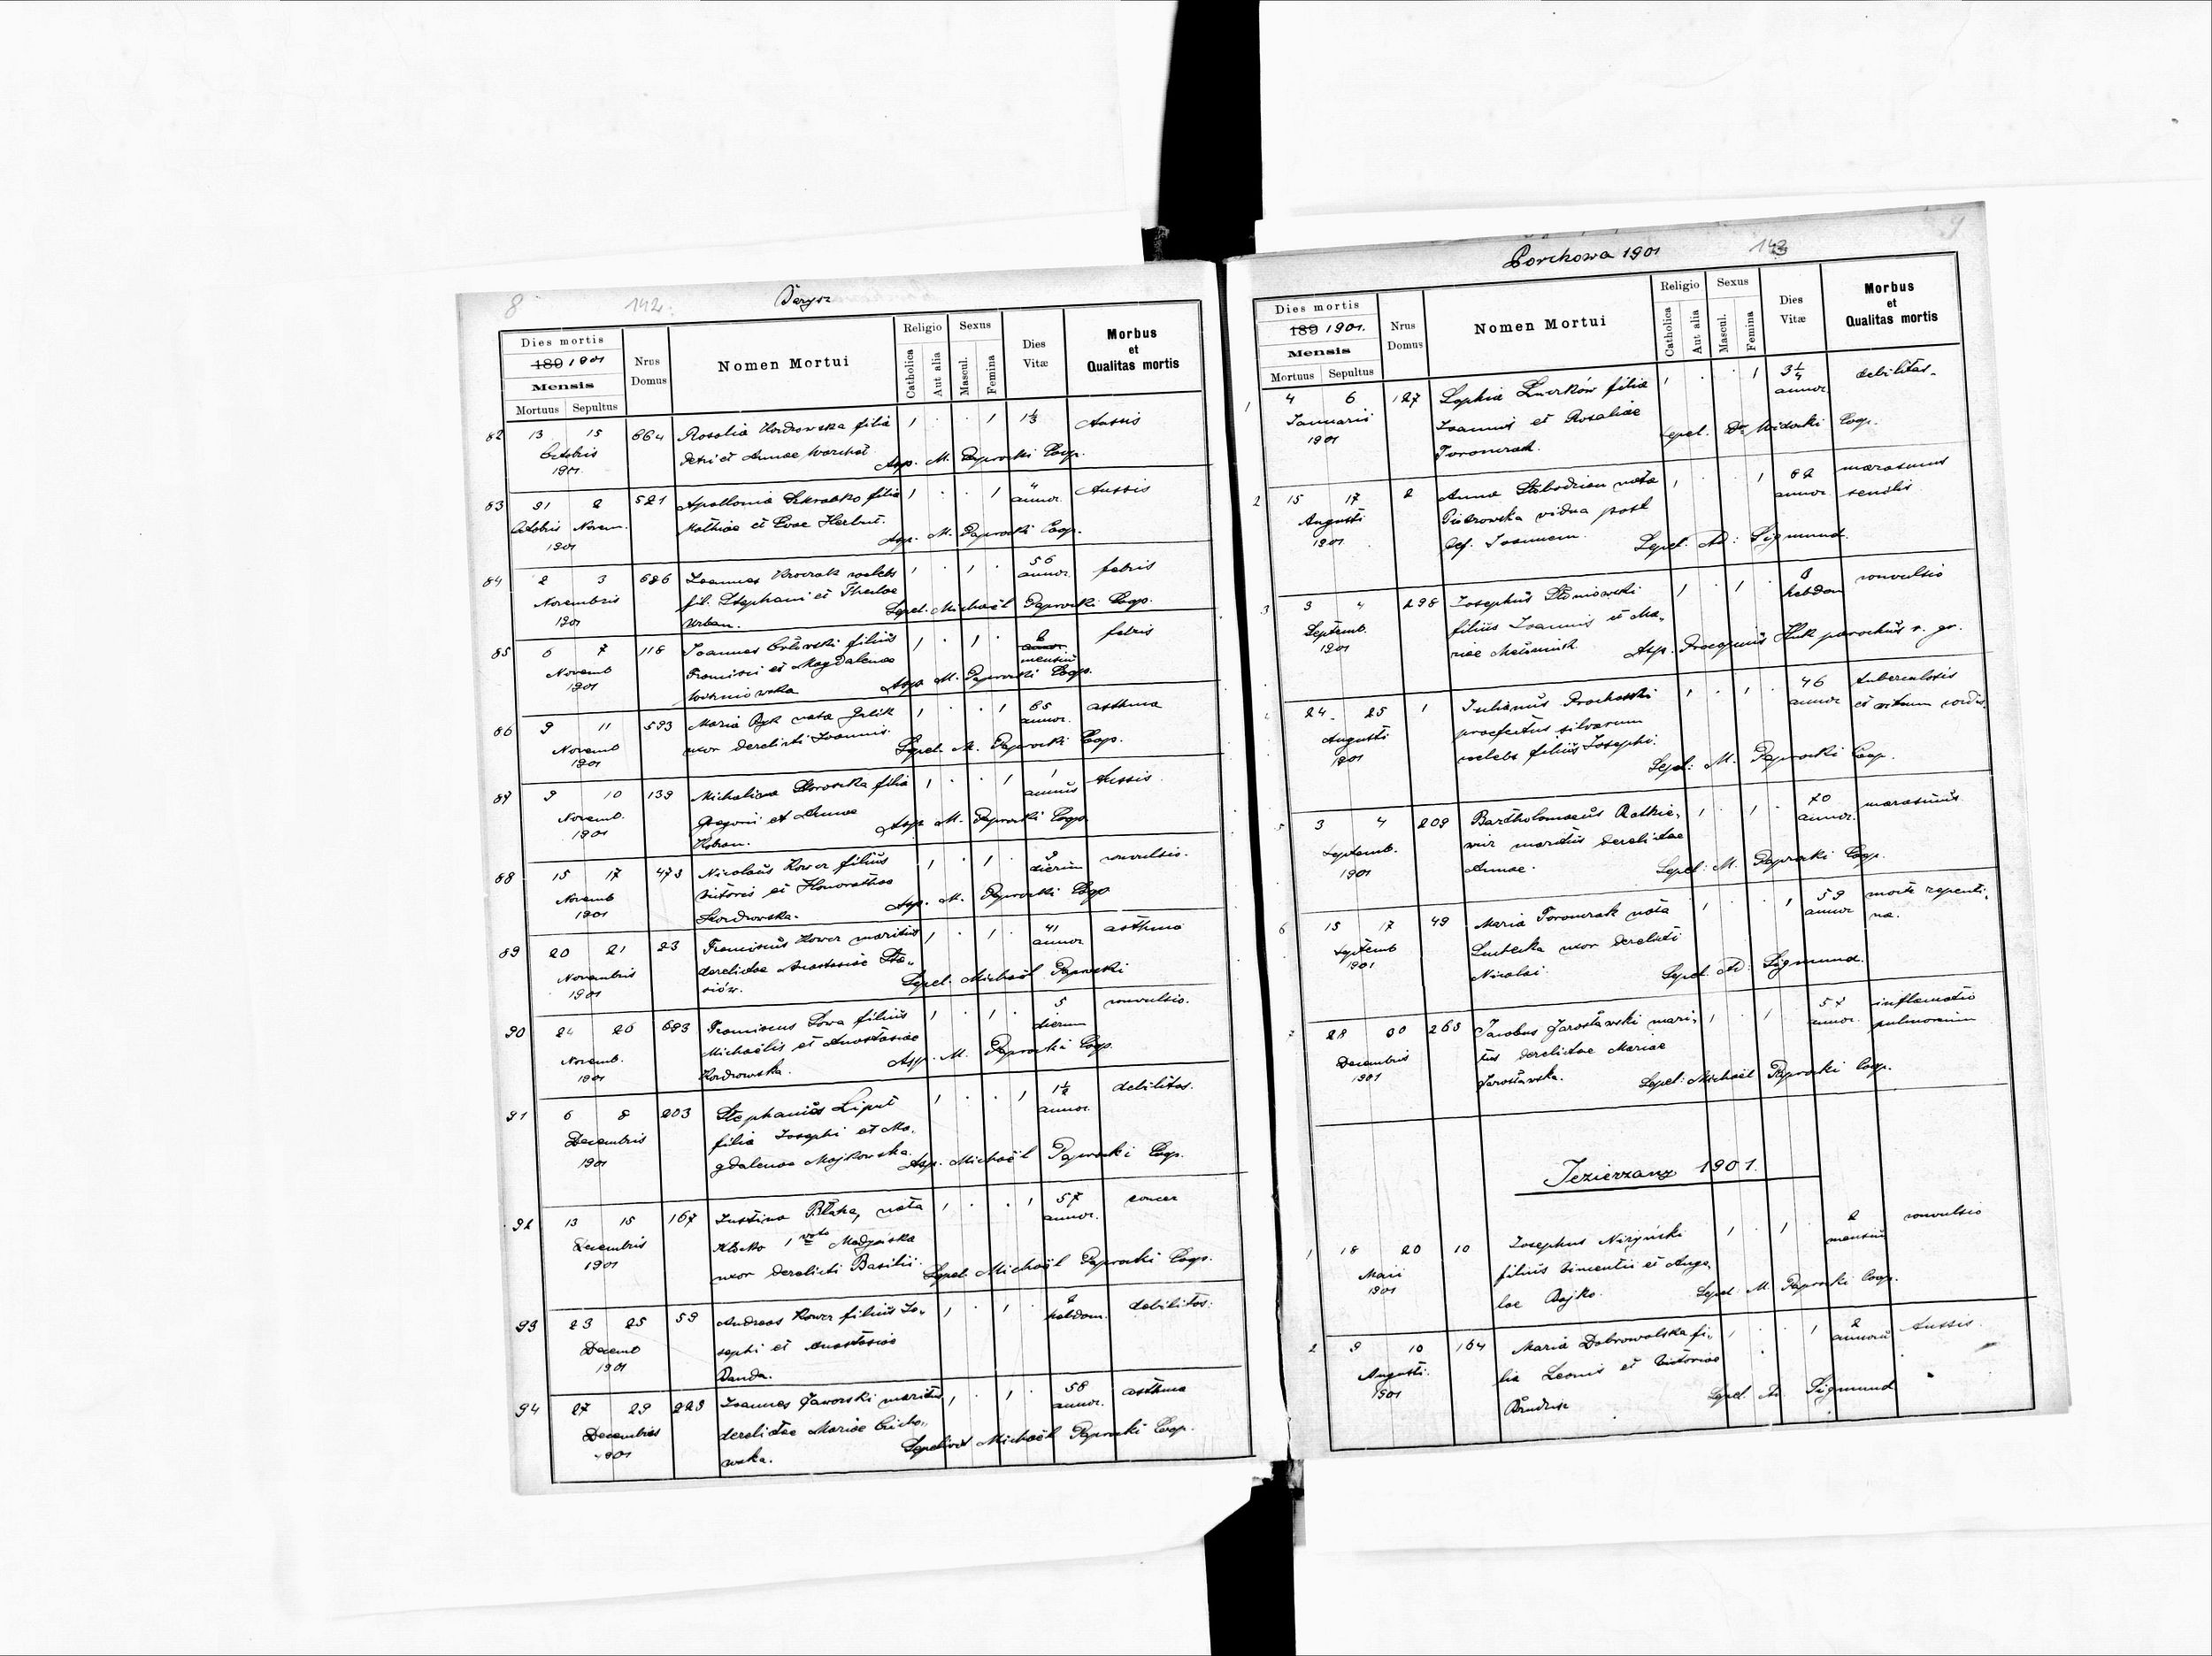 8 142. Barysz
Dies mortis
189 1901
Mensis
Mortuus Sepultus
Nrus Domus
Nomen Mortui
Religio
Catholica Aut alia
Sexus
Mascul. Femina
Dies Vitæ
Morbus et Qualitas mortis
82 13 15 664 Rosalia filia 1 . . 1 1½ tussis
Octobris Petri et Annae
1901 Asp. M. Paprocki Coop.
83 31 2 521 Apollonia filia 1 . . 1 4 annor. tussis
Octobris Novem. Mathiae et Evae Herbut.
1901 Asp. M. Paprocki Coop.
84 2 3 686 Joannes caelebs 1 . 1 . 56 annor. febris
Novembris fil. Stephani et Theclae
1901 Urban. Sepel. Michaël Paprocki Coop.
85 6 7 118 Joannes filius 1 . 1 . mensiu febris
Novemb Francisci et Magdalenae
1901 Asp. M. Paprocki Coop.
86 9 11 593 Maria Byk nata 1 . . 1 65 annor. asthma
Novemb uxor derelicti Joannis.
1901 Sepel. M. Paprocki Coop.
87 9 10 139 Michalina filia 1 . . 1 1 annus tussis
Novemb. Gregorii et Annae
1901 Asp. M. Paprocki Coop.
88 15 17 473 Nicolaus Kowcz filius 1 . 1 . 9 dierum convulsio.
Novemb Victoris et Honorathae
1901 Asp. M. Paprocki Coop
89 20 21 23 Franciscus Kowcz maritus 1 . 1 . 41 annor asthma
Novembris derelictae Anastasiae
1901 Sepel. Michaël Paprocki
90 24 26 693 Franciscus Sowa filius 1 . 1 . 5 dierum convulsio.
Novemb. Michaëlis et Anastasiae
1901 Asp. M. Paprocki Coop.
91 6 8 203 Stephania 1 . . 1 1½ annor. debilitas.
Decembris filia Josephi et Ma-
1901 gdalenae Majkowska. Asp. Michaël Paprocki Coop.
92 13 15 167 Justina nata 1 . . 1 57 annor. cancer
Decembris 1 voto
1901 uxor derelicti Basilii. Sepel. Michaël Paprocki Coop.
93 23 25 59 Andreas Kowcz filius Jo- 1 . 1 . hebdom. debilitas.
Decemb sephi et Anastasiae
1901
94 27 29 223 Joannes Jaworski maritus 1 . 1 . 58 annor. asthma
Decembris derelictae Mariae Cicho-
1901 wska. Sepelivit Michaël Paprocki Coop.
Porchowa 1901 143 9
Dies mortis
189 1901.
Mensis
Mortuus Sepultus
Nrus Domus
Nomen Mortui
Religio
Catholica Aut alia
Sexus
Mascul. Femina
Dies Vitæ
Morbus et Qualitas mortis
1 4 6 127 Sophia filia 1 . . 1 3¼ annor debilitas.
Januarii Joannis et Rosaliae
1901 Toronczak. Sepel. Coop.
2 15 17 2 Anna nata 1 . . 1 82 annor. marasmus
Augusti Piotrowska vidua post senilis
1901 def. Joannem. Sepel. Ad: Sigmund.
3 3 4 298 Josephus 1 . 1 . 8 hebdom convulsio
Septemb. filius Joannis et Ma-
1901 riae Asp. Huk parochus r. gr.
24 25 1 Julianus Prochaski 1 . 1 . 46 annor tuberculosis
Augusti praefectus silvarum et vitium cordis
1901 caelebs filius Josephi. Sepel: M. Paprocki Coop.
5 3 4 209 Bartholomaeus Ratkie- 1 . 1 . 70 annor. marasmus
Septemb. wicz maritus derelictae
1901 Annae. Sepel: M. Paprocki Coop.
6 15 17 49 Maria Toronczak nata 1 . . 1 59 annor morte repenti-
Septemb uxor derelicti na.
1901 Nicolai. Sepel. Ad: Sigmund.
7 28 30 263 Jacobus Jarosławski mari- 1 . 1 . 57 annor. inflamatio
Decembris tus derelictae Mariae pulmonum
1901 Jarosławska. Sepel: Michaël Paprocki Coop.
Jezierzany 1901.
1 18 20 10 Josephus 1 . 1 . 2 mensiu convulsio
Maii filius Vincentii et Ange-
1901 lae Bojko. Sepel M. Paprocki Coop.
2 9 10 164 Maria Dobrowolska fi- 1 . . 1 2 annoru tussis.
Augusti. lia Leonis et Victoriae
1901 Sepel. Ad. Sigmund